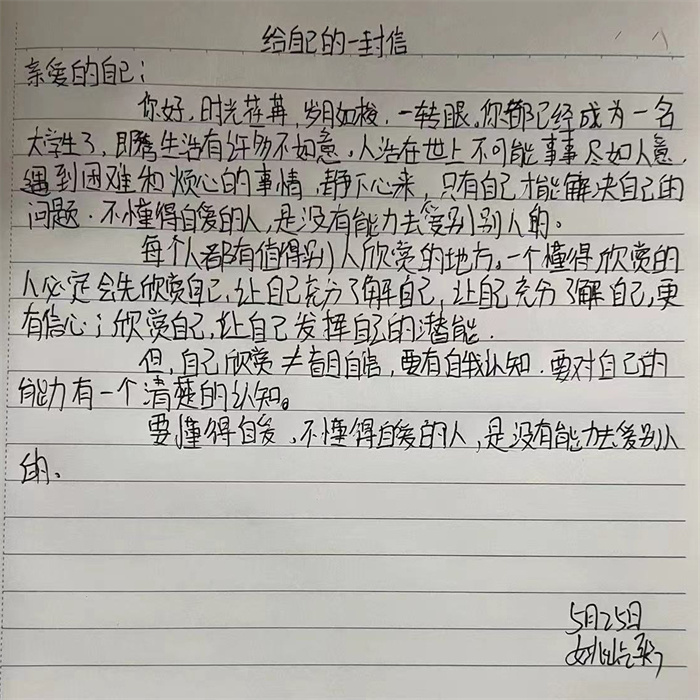 给自己的一封信
亲爱的自己:
你好,时光荏苒,岁月如梭,一转眼,你都已经成为一名
大学生了,即隽生活有许多不如意,人活在世上不可能事事尽如人意,
遇到困难和烦心的事情,静下心来,只有自己才能解决自己的
问题.不懂得自爱的人,是没有能力去爱别别人的。
每个人都有值得别人欣赏的地方。一个懂得欣赏的
人必定会先欣赏自己,让自己充分了解自己,让自己充分了解自己,更
有信心;欣赏自己,让自己发挥自己的潜能.
但,自己欣赏≠盲目自信,要有自我认知.要对自己的
能力有一个清楚的认知。
要懂得自爱,不懂得自爱的人,是没有能力去爱别人
的.
5月25日